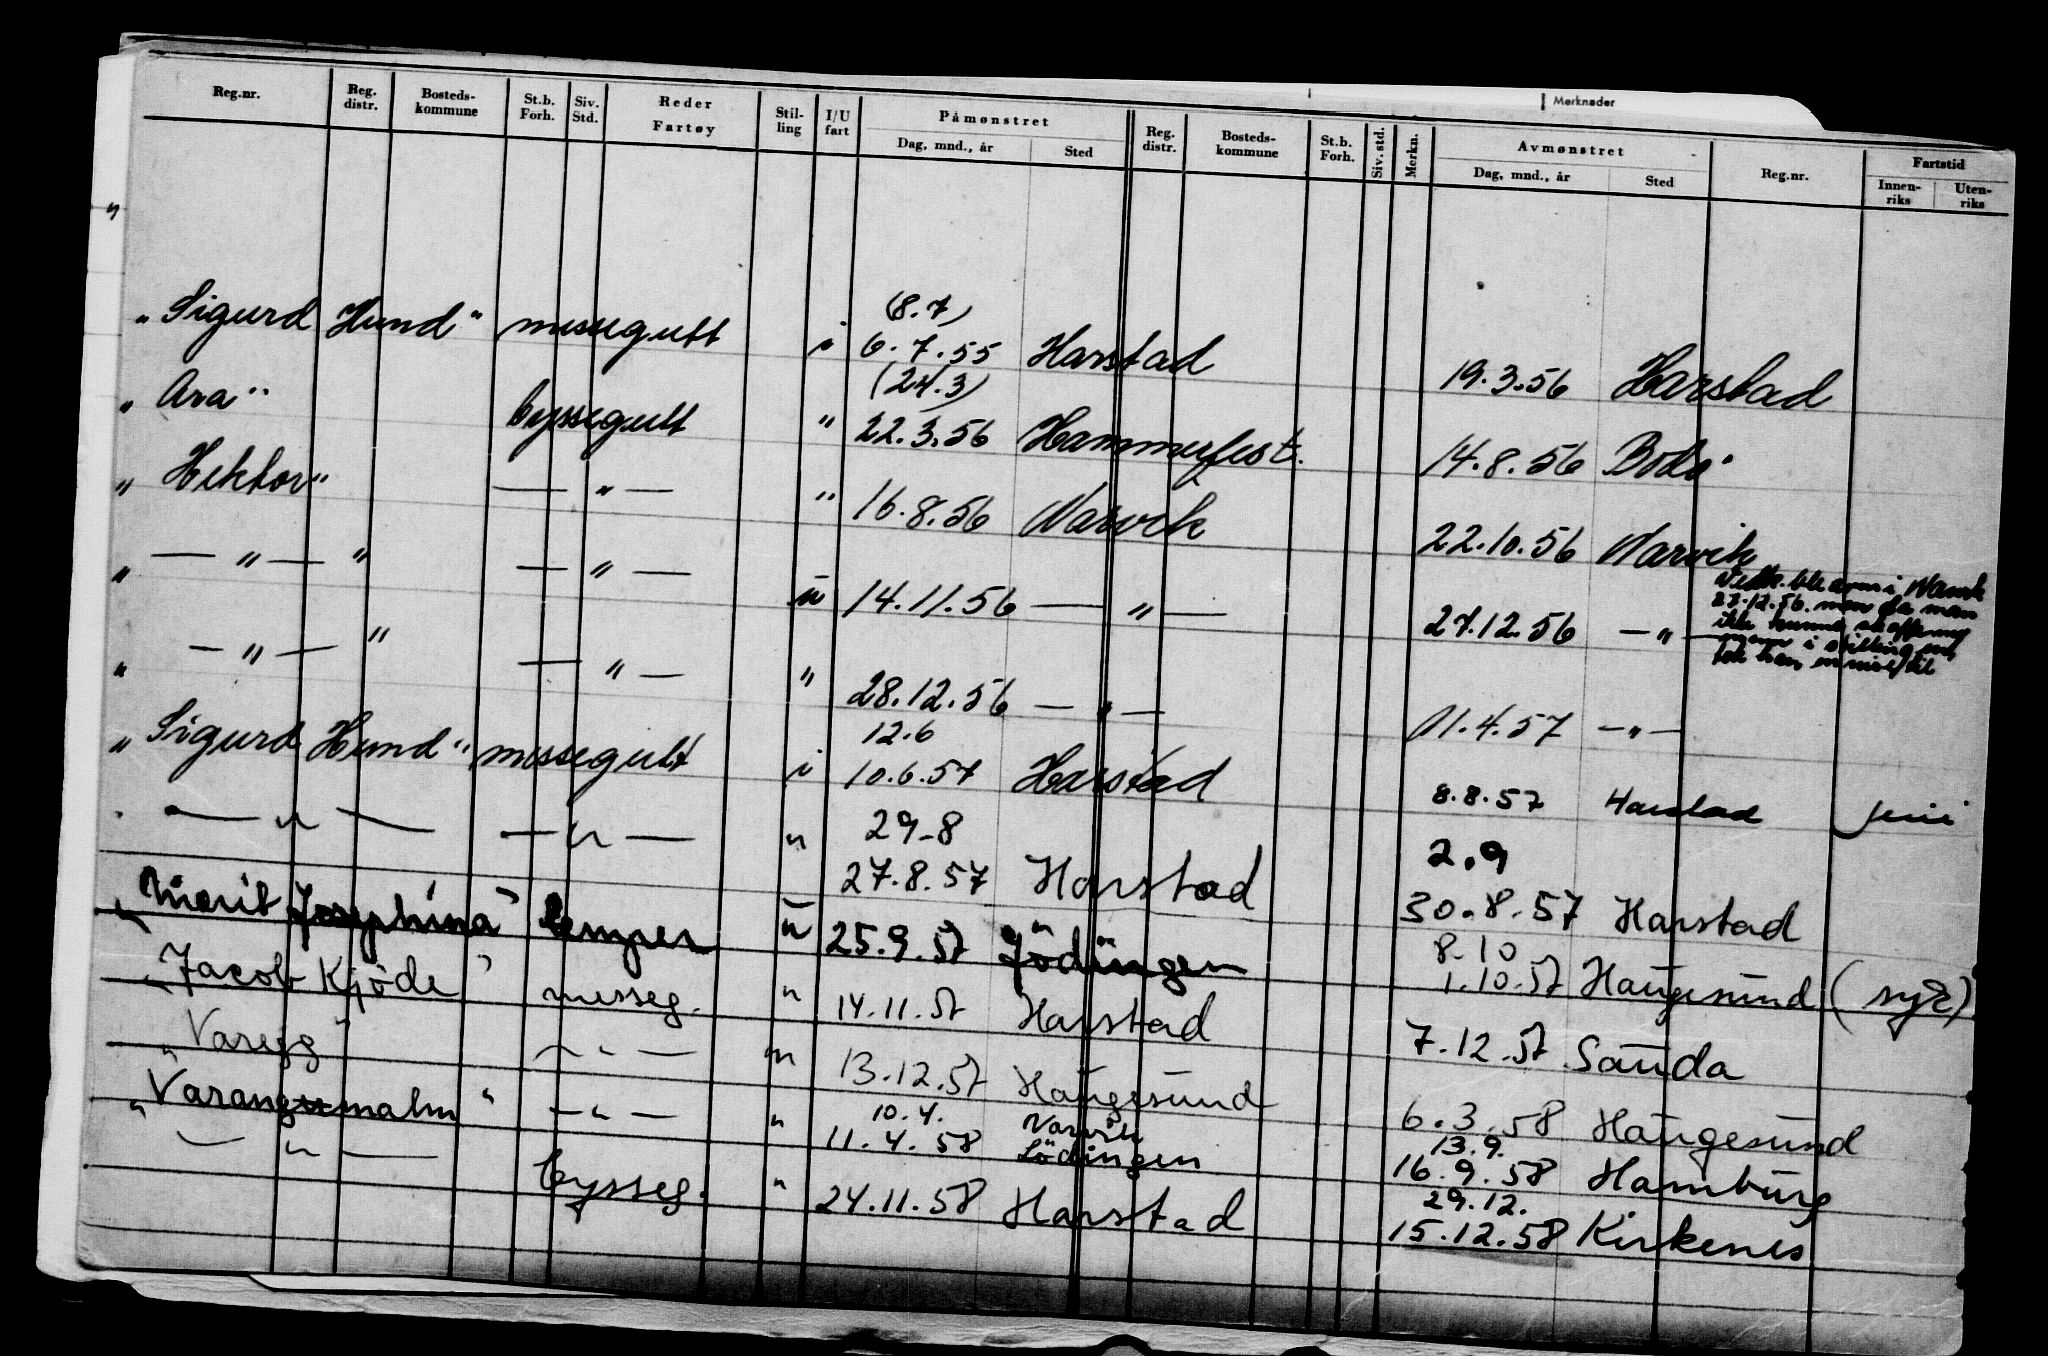 Merknader
Reg.nr. Reg. distr. Bosteds-kommune St.b. Forh. Siv. Std. Reder Fartøy Stil-ling I/U fart Påmønstret Dag, mnd., år Sted Reg. distr. Bosteds-kommune St.b. Forh. Siv. std. Merkn. Avmønstret Dag, mnd., år Sted Reg.nr. Fartstid Innen-riks Uten-riks
"
(8.7)
"Sigurd Hund" messegutt i 6.7.55 Harstad 19.3.56 Harstad
(24.3)
"Ara" byssegutt " 22.3.56 Hammerfest. 14.8.56 Bodø
"Hektor" — " — " 16.8.56 Narvik 22.10.56 Narvik
" — " — " — " — u 14.11.56 — " — 27.12.56 — " —
27.12.56. men da man
ikke kunne
mann i stilling
" — " — " — " — " 28.12.56 — " — 11.4.57 — " —
12.6
"Sigurd Hund" messegutt i 10.6.57 Harstad 8.8.57 Harstad
29-8 2.9
— " — — " — " 27.8.57 Harstad 30.8.57 Harstad
8-10
"Marit Josephina" u 25.9.57 Lödingen 1.10.57 Haugesund (syk)
"Jacob Kjøde" messeg. " 14.11.57 Harstad 7.12.57 Sauda
"Varegg" — " — " 13.12.57 Haugesund 6.3.58 Haugesund
10.4. Narvik 13.9.
"Varangmalm" — " — " 11.4.58 Lödingen 16.9.58 Hamburg
29.12.
— " — bysseg. " 24.11.58 Harstad 15.12.58 Kirkenes